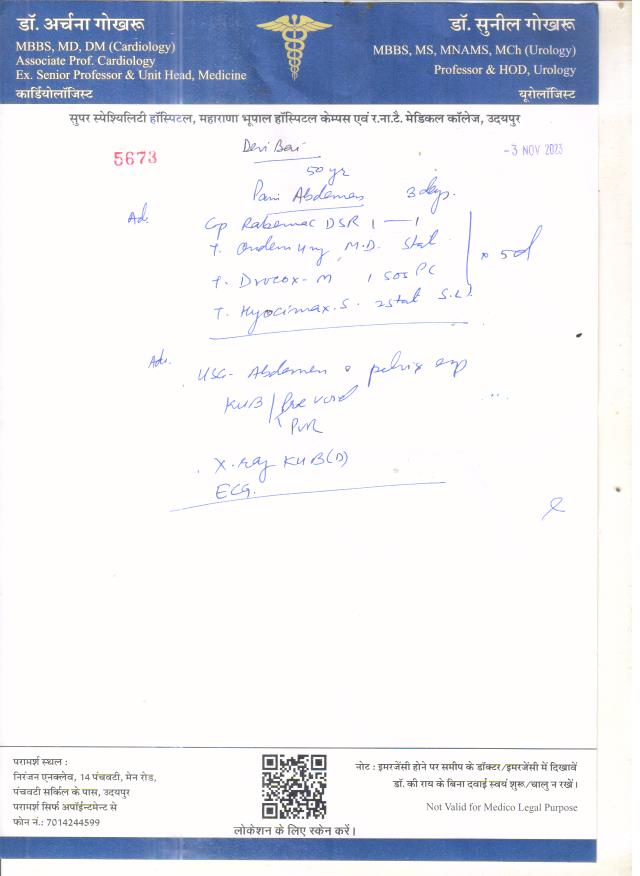 डॉ. अर्चना गोखरू
MBBS, MD, DM (Cardiology)
Associate Prof. Cardiology
Ex. Senior Professor & Unit Head, Medicine
कार्डियोलॉजिस्ट
डॉ. सुनील गोखरू
MBBS, MS, MNAMS, MCh (Urology)
Professor & HOD, Urology
यूरोलॉजिस्ट
सुपर स्पेश्यिलिटी हॉस्पिटल, महाराणा भूपाल हॉस्पिटल केम्पस एवं र.ना.टै. मेडिकल कॉलेज, उदयपुर
5673
Devi Bai
- 3 NOV 2023
50 yr
Pain Abdomen 3 days.
Ad.
Cap Rabemac DSR 1 — 1
T. Ondem M.D. Stat
T. Drocox-M 1 SOS PC
T. Hyocimax.S. 2 stat S.L.
x 5d
Adv.
USG - Abdomen & pelvis
KUB / Pre void
PVR
X-ray KUB (D)
ECG.
परामर्श स्थल :
निरंजन एनक्लेव, 14 पंचवटी, मेन रोड,
पंचवटी सर्किल के पास, उदयपुर
परामर्श सिर्फ अपॉईन्टमेन्ट से
फोन नं.: 7014244599
लोकेशन के लिए स्केन करें।
नोट : इमरजेंसी होने पर समीप के डॉक्टर/इमरजेंसी में दिखावें
डॉ. की राय के बिना दवाई स्वयं शुरू/चालु न रखें।
Not Valid for Medico Legal Purpose